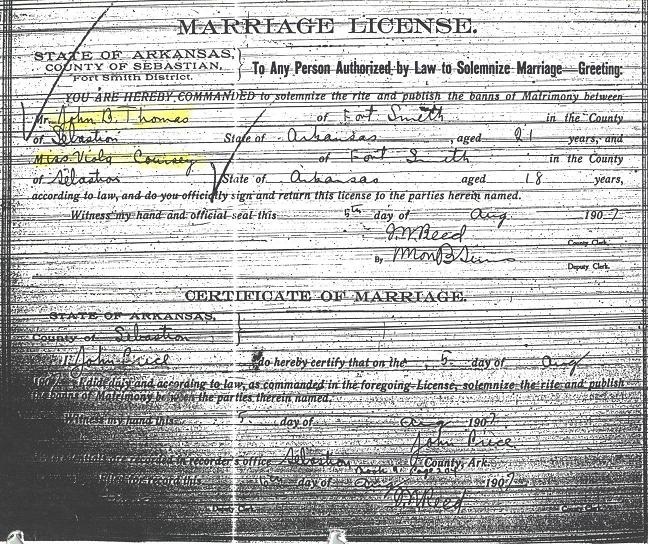 MARRIAGE LICENSE.
STATE OF ARKANSAS,
COUNTY OF SEBASTIAN,
Fort Smith District.
To Any Person Authorized by Law to Solemnize Marriage—Greeting:
YOU ARE HEREBY COMMANDED to solemnize the rite and publish the banns of Matrimony between
Mr. John B. Thomas of Fort Smith in the County
of Sebastian State of Arkansas, aged 21 years, and
Miss Viola Coursey of Fort Smith in the County
of Sebastian State of Arkansas aged 18 years,
according to law, and do you officially sign and return this license to the parties herein named.
Witness my hand and official seal this 5th day of Aug 1907
J.W. Reed County Clerk.
By Mon B Sims Deputy Clerk.
CERTIFICATE OF MARRIAGE.
STATE OF ARKANSAS,
County of Sebastian
I John Brice do hereby certify that on the 5 day of Aug
1907 I did duly and according to law, as commanded in the foregoing License, solemnize the rite and publish
the banns of Matrimony between the parties therein named.
Witness my hand this 5 day of Aug 1907
John Brice
recorded in recorder's office Sebastian County, Ark.
record this day of Aug 1907
J.W. Reed
Deputy Clerk. County Clerk.